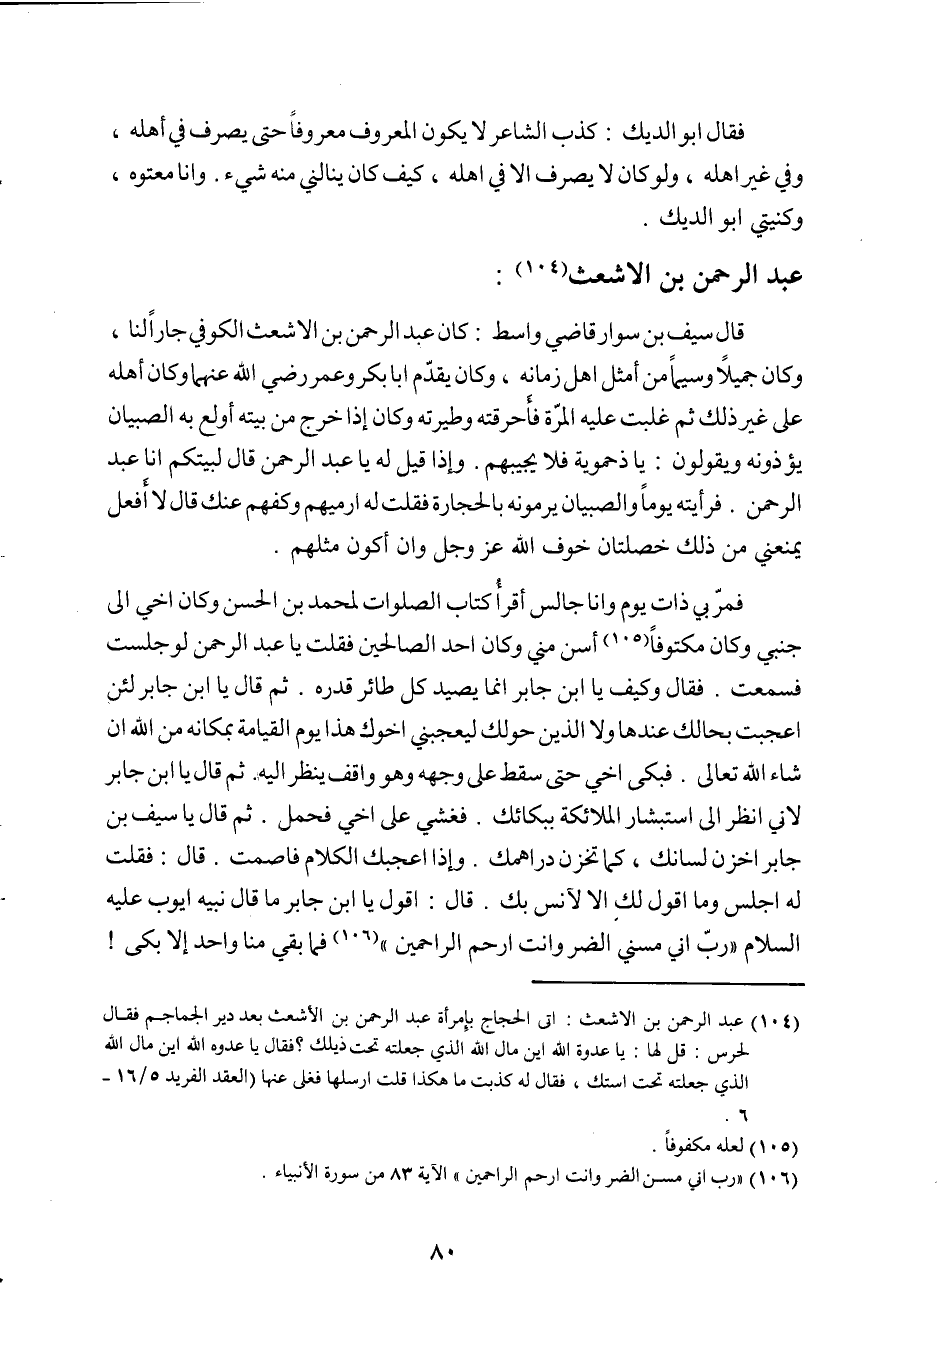 فقال ابو الديك : كذب الشاعر لا يكون المعروف معروفاً حتى يصرف في أهله ،
وفي غير اهله ، ولو كان لا يصرف الا في اهله ، كيف كان ينالني منه شيء . وانا معتوه ،
وكنيتي ابو الديك .
عبد الرحمن بن الاشعث(١٠٤) :
قال سيف بن سوار قاضي واسط : كان عبد الرحمن بن الاشعث الكوفي جاراً لنا ،
وكان جميلاً وسيماً من أمثل اهل زمانه ، وكان يقدّم ابا بكر وعمر رضي الله عنهما وكان أهله
على غير ذلك ثم غلبت عليه المرّة فأحرقته وطيرته وكان إذا خرج من بيته أولع به الصبيان
يؤذونه ويقولون : يا ذحموية فلا يجيبهم . وإذا قيل له يا عبد الرحمن قال لبيتكم انا عبد
الرحمن . فرأيته يوماً والصبيان يرمونه بالحجارة فقلت له ارميهم وكفهم عنك قال لا أفعل
يمنعني من ذلك خصلتان خوف الله عز وجل وان أكون مثلهم .
فمرّ بي ذات يوم وانا جالس أقرأ كتاب الصلوات لمحمد بن الحسن وكان اخي الى
جنبي وكان مكتوفاً(١٠٥) أسن مني وكان احد الصالحين فقلت يا عبد الرحمن لو جلست
فسمعت . فقال وكيف يا ابن جابر انما يصيد كل طائر قدره . ثم قال يا ابن جابر لئن
اعجبت بحالك عندها ولا الذين حولك ليعجبني اخوك هذا يوم القيامة بمكانه من الله ان
شاء الله تعالى . فبكى اخي حتى سقط على وجهه وهو واقف ينظر اليه. ثم قال يا ابن جابر
لاني انظر الى استبشار الملائكة ببكائك . فغشي على اخي فحمل . ثم قال يا سيف بن
جابر اخزن لسانك ، كما تخزن دراهمك . وإذا اعجبك الكلام فاصمت . قال : فقلت
له اجلس وما اقول لك الا لآنس بك . قال : اقول يا ابن جابر ما قال نبيه ايوب عليه
السلام «ربّ اني مسني الضر وانت ارحم الراحمين »(١٠٦) فما بقي منا واحد إلا بكى !
(١٠٤) عبد الرحمن بن الاشعث : اتى الحجاج بإمرأة عبد الرحمن بن الأشعث بعد دير الجماجم فقال
لحرس : قل لها : يا عدوة الله اين مال الله الذي جعلته تحت ذيلك ؟فقال يا عدوه الله اين مال الله
الذي جعلته تحت استك ، فقال له كذبت ما هكذا قلت ارسلها فغلى عنها (العقد الفريد ١٦/٥ -
٦ .
(١٠٥) لعله مكفوفاً .
(١٠٦) «رب اني مسـن الضر وانت ارحم الراحمين » الآية ٨٣ من سورة الأنبياء .
٨٠